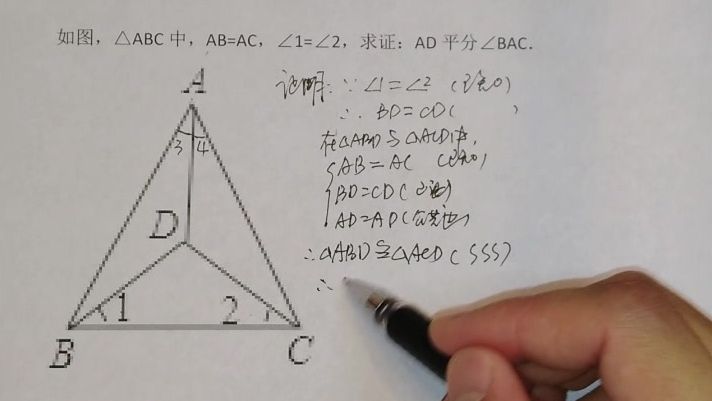 如图，△ABC 中，AB=AC，∠1=∠2，求证：AD 平分∠BAC.
A
3 4
D
1 2
B C
证明：∵ ∠1=∠2 (已知)
∴ BD=CD( )
在△ABD与△ACD中，
AB=AC (已知)
BD=CD(已证)
AD=AD(公共边)
∴△ABD≌△ACD(SSS)
∴